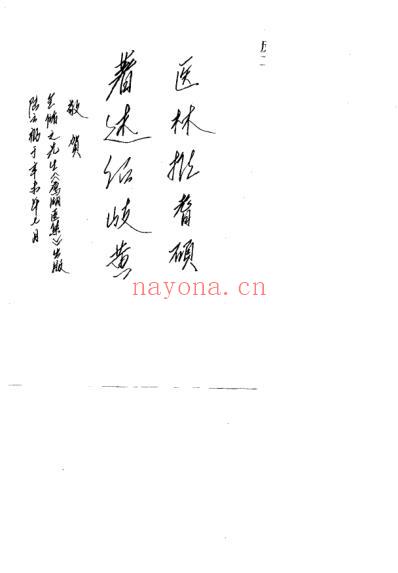 医林推耆硕
著述绍岐黄
敬贺
先生《湖医集》出版
于辛未年七月
nayona.cn